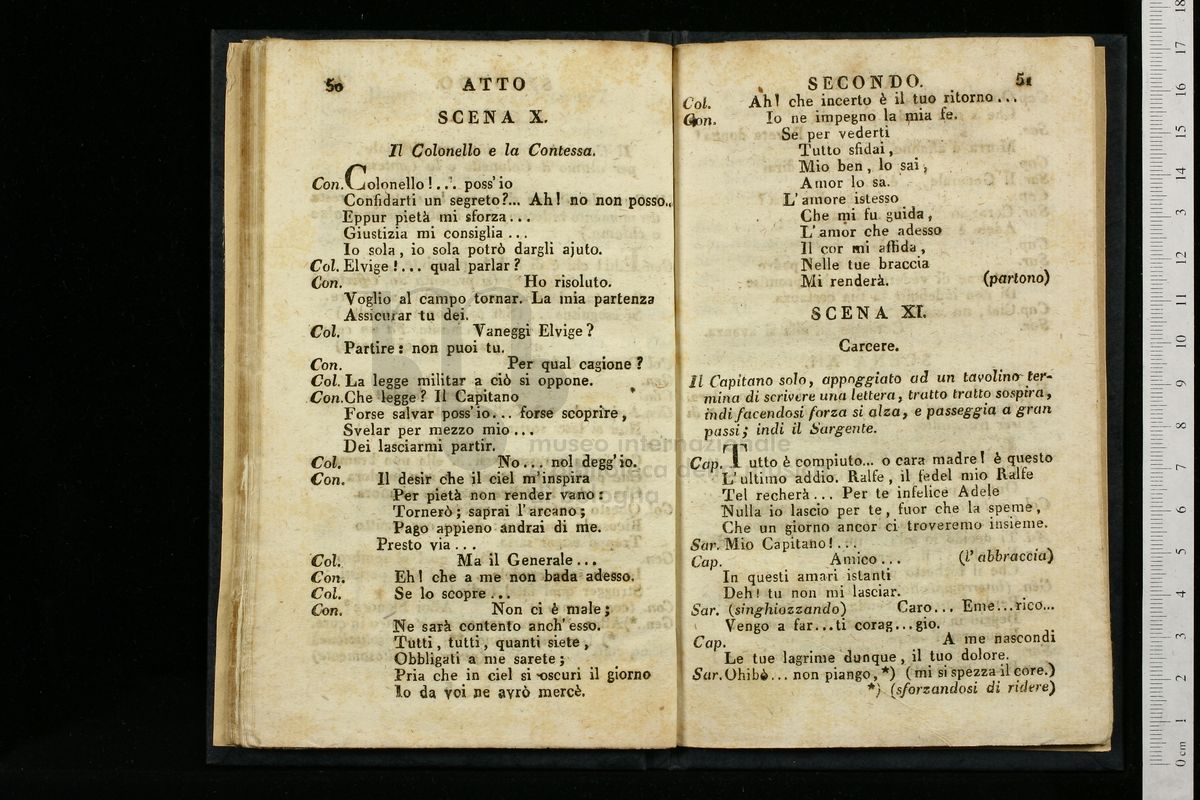 50 ATTO
SCENA X.
Il Colonello e la Contessa.
Con. Colonello!... poss'io
Confidarti un segreto?... Ah! no non posso..
Eppur pietà mi sforza...
Giustizia mi consiglia...
Io sola, io sola potrò dargli ajuto.
Col. Elvige!... qual parlar?
Con. Ho risoluto.
Voglio al campo tornar. La mia partenza
Assicurar tu dei.
Col. Vaneggi Elvige?
Partire: non puoi tu.
Con. Per qual cagione?
Col. La legge militar a ciò si oppone.
Con. Che legge? Il Capitano
Forse salvar poss'io... forse scoprire,
Svelar per mezzo mio...
Dei lasciarmi partir.
Col. No... nol degg'io.
Con. Il desir che il ciel m'inspira
Per pietà non render vano:
Tornerò; saprai l'arcano;
Pago appieno andrai di me.
Presto via...
Col. Ma il Generale...
Con. Eh! che a me non bada adesso.
Col. Se lo scopre...
Con. Non ci è male;
Ne sarà contento anch'esso.
Tutti, tutti, quanti siete,
Obbligati a me sarete;
Pria che in ciel si oscuri il giorno
Io da voi ne avrò mercè.
SECONDO. 51
Col. Ah! che incerto è il tuo ritorno...
Con. Io ne impegno la mia fe.
Se per vederti
Tutto sfidai,
Mio ben, lo sai,
Amor lo sa.
L'amore istesso
Che mi fu guida,
L'amor che adesso
Il cor mi affida,
Nelle tue braccia
Mi renderà. (partono)
SCENA XI.
Carcere.
Il Capitano solo, appoggiato ad un tavolino ter-
mina di scrivere una lettera, tratto tratto sospira,
indi facendosi forza si alza, e passeggia a gran
passi; indi il Sargente.
Cap. Tutto è compiuto... o cara madre! è questo
L'ultimo addio. Ralfe, il fedel mio Ralfe
Tel recherà... Per te infelice Adele
Nulla io lascio per te, fuor che la speme,
Che un giorno ancor ci troveremo insieme.
Sar. Mio Capitano!...
Cap. Amico... (l'abbraccia)
In questi amari istanti
Deh! tu non mi lasciar.
Sar. (singhiozzando) Caro... Eme...rico...
Vengo a far...ti corag...gio.
Cap. A me nascondi
Le tue lagrime dunque, il tuo dolore.
Sar. Ohibò... non piango,*) (mi si spezza il core.)
*) (sforzandosi di ridere)
museo internazionale
e biblioteca della musica
di Bologna
0 cm 1 2 3 4 5 6 7 8 9 10 11 12 13 14 15 16 17 18